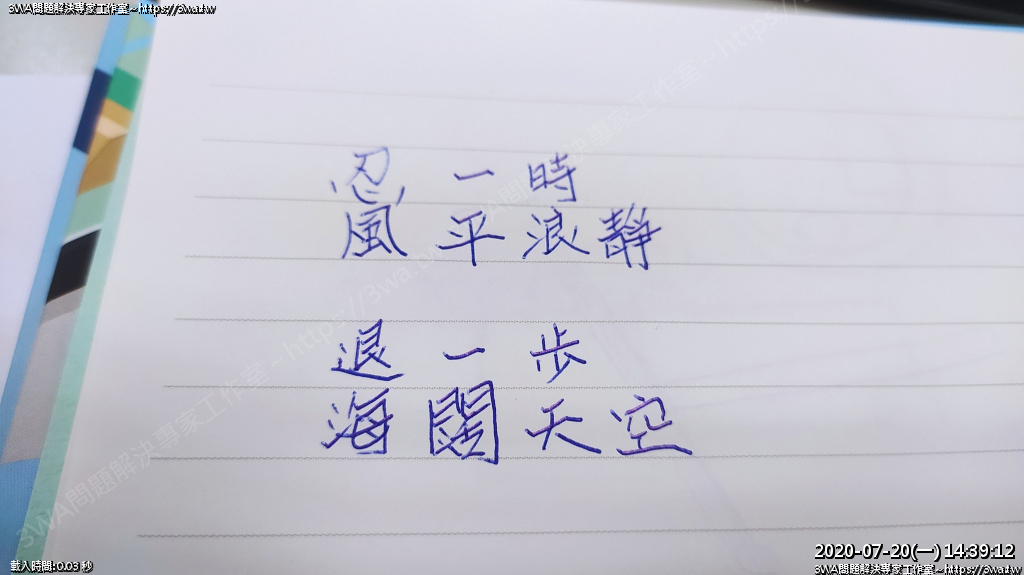 3WA問題解決專家工作室~https://3wa.tw
忍一時
風平浪靜
退一步
海闊天空
3WA問題解決專家工作室~https://3wa.tw
載入時間:0.03 秒
2020-07-20(一) 14:39:12
3WA問題解決專家工作室~https://3wa.tw